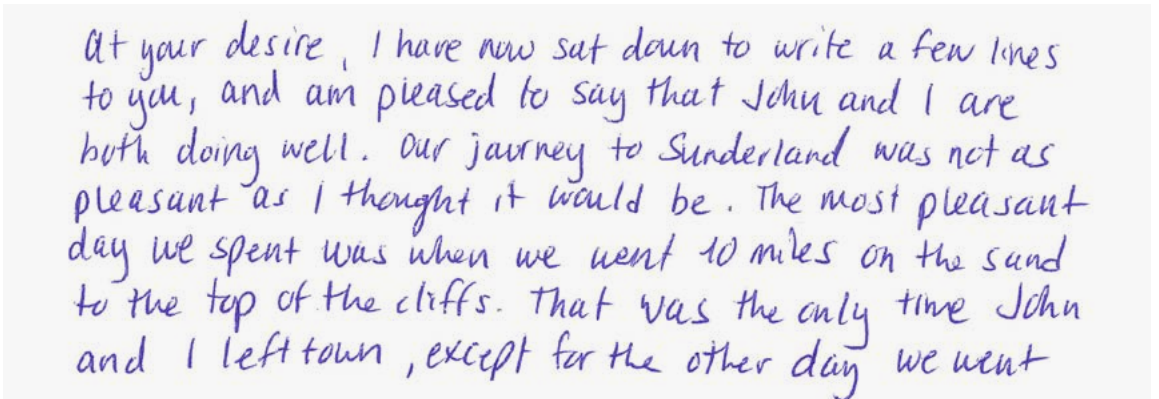 At your desire, I have now sat down to write a few lines
to you, and am pleased to say that John and I are
both doing well. Our journey to Sunderland was not as
pleasant as I thought it would be. The most pleasant
day we spent was when we went 10 miles on the sand
to the top of the cliffs. That was the only time John
and I left town, except for the other day we went